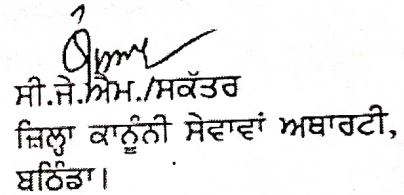 ਸੀ.ਜੇ.ਐਮ./ਸਕੱਤਰ
ਜ਼ਿਲ੍ਹਾ ਕਾਨੂੰਨੀ ਸੇਵਾਵਾਂ ਅਥਾਰਟੀ,
ਬਠਿੰਡਾ।